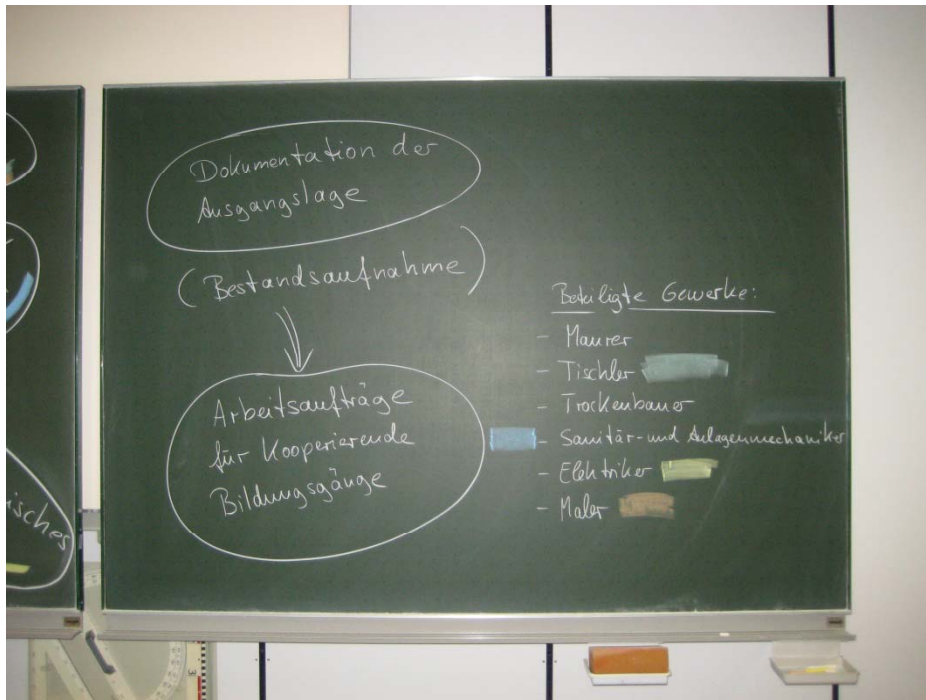 Dokumentation der
Ausgangslage
(Bestandsaufnahme)
Arbeitsaufträge
für Kooperierende
Bildungsgänge
Beteiligte Gewerke:
- Maurer
- Tischler
- Trockenbauer
- Sanitär- und Anlagenmechaniker
- Elektriker
- Maler
isches